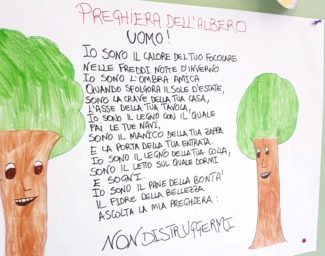 PREGHIERA DELL'ALBERO
UOMO!
IO SONO IL CALORE DEL TUO FOCOLARE
NELLE FREDDI NOTTE D'INVERNO
IO SONO L'OMBRA AMICA
QUANDO SFOLGORA IL SOLE D'ESTATE,
SONO LA CRAVE DELLA TUA CASA,
L'ASSE DELLA TUA TAVOLA,
IO SONO IL LEGNO CON IL QUALE
FAI LE TUE NAVI,
SONO IL MANICO DELLA TUA ZAPPA
E LA PORTA DELLA TUA ENTRATA.
IO SONO IL LEGNO DELLA TUA CULLA,
SONO IL LETTO SUL QUALE DORMI
E SOGNI.
IO SONO IL PANE DELLA BONTA'
IL FIORE DELLA BELLEZZA
ASCOLTA LA MIA PREGHIERA:
NON DISTRUGGERMI